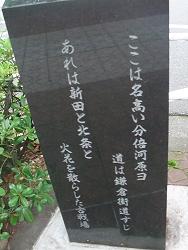 ここは名高い分倍河原ヨ
道は鎌倉街道すじ
あれは新田と北条と
火花を散らした古戦場